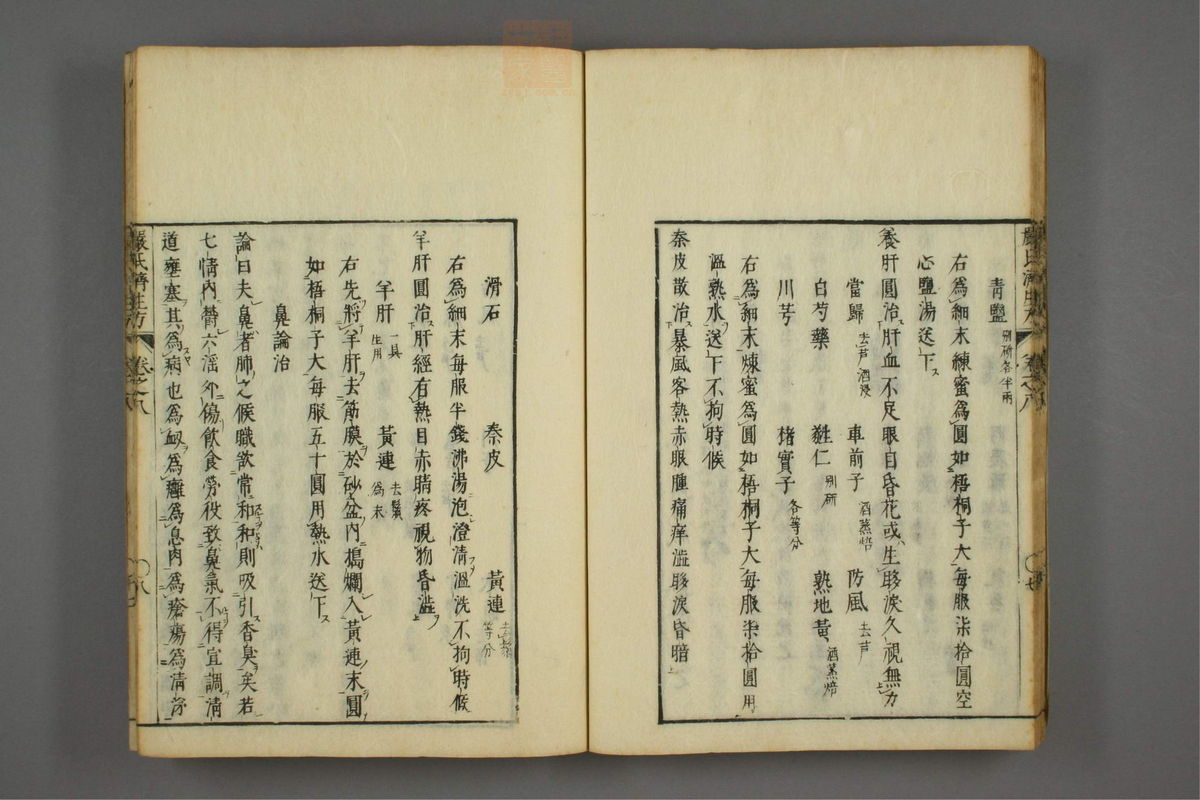 青鹽別研各半兩
右為細末練蜜為圓如梧桐子大每服柒拾圓空
心鹽湯送下
養肝圓治肝血不足眼目昏花或生眵淚久視無力
當歸去芦酒浸 車前子酒蒸焙 防風去芦
白芍藥 蕤仁別研 熟地黃酒蒸焙
川芎 楮實子各等分
右為細末煉蜜為圓如梧桐子大每服柒拾圓用
溫熱水送下不拘時候
秦皮散治暴風客熱赤眼腫痛痒澁眵淚昏暗
滑石 秦皮 黃連去鬚等分
右為細末每服半錢沸湯泡澄清溫洗不拘時候
羊肝圓治肝經有熱目赤睛疼視物昏澁
羊肝一具生用 黃連去鬚為末
右先將羊肝去筋膜於砂盆內搗爛入黃連末圓
如梧桐子大每服五十圓用熱水送下
鼻論治
論曰夫鼻者肺之候職欲常和和則吸引香臭矣若
七情內欝六淫外傷飲食勞役致鼻氣不得宣調清
道壅塞其為病也為衄為癰為息肉為瘡瘍為清涕
嚴氏濟生方 卷之八